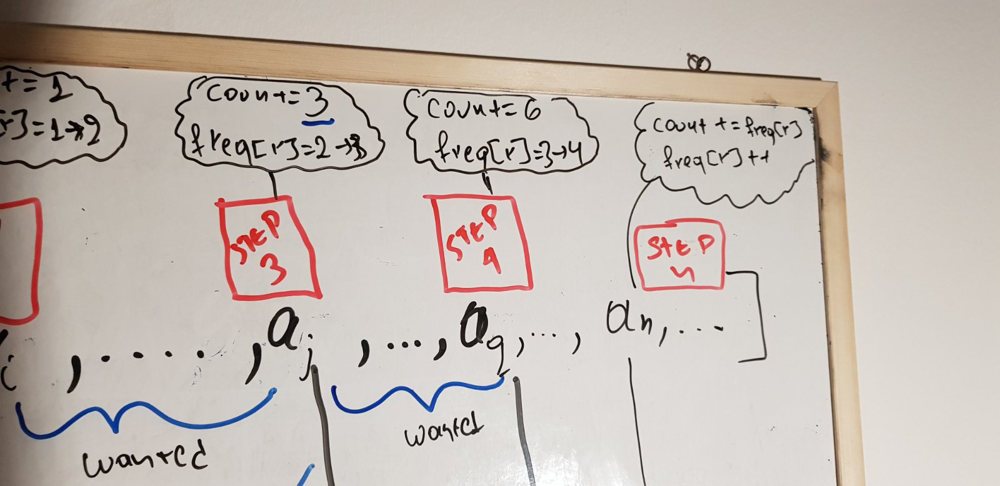 t=1
[r]=1→2
count=3
freq[r]=2→3
count=6
freq[r]=3→4
count +=freq[r]
freq[r]++
STEP
3
STEP
4
STEP
n
i , .... , aj , ..., aq, ..., an, ...
wanted
wanted